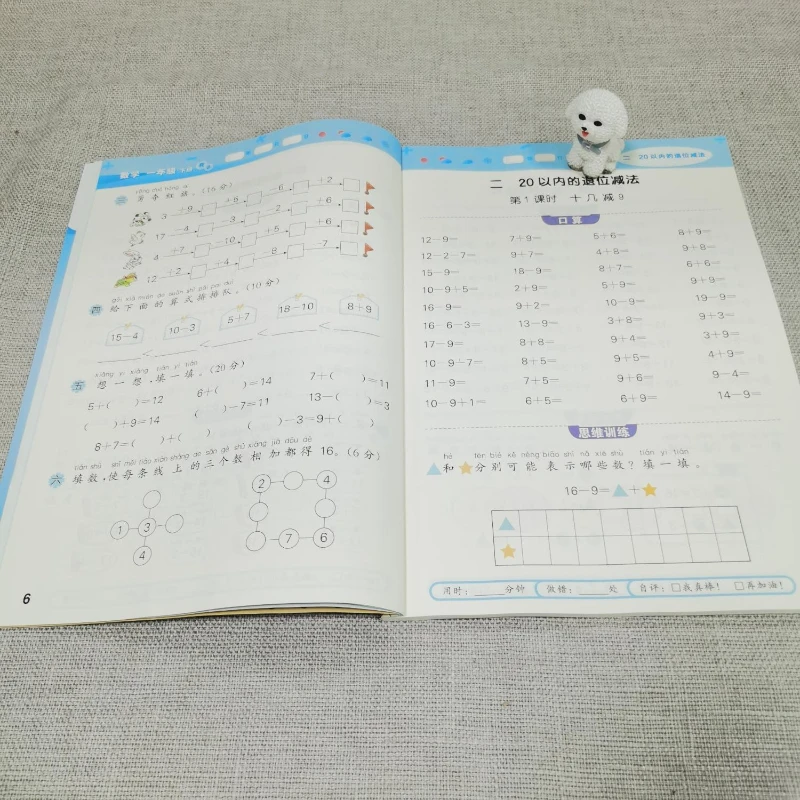 数学 一年级
zhēng duó hóng qí
三 争夺红旗。(16分)
3 +9 +5 −6 +2
17 −4 −3 −2 +6
4 +7 −10 +5 +6
12 +2 +4 −8 −7
四 给下面的算式排排队。(10分)
15−4 10−3 5+7 18−10 8+9
< < < <
xiǎng yi xiǎng tián yi tián
五 想一想,填一填。(20分)
5+( )=12 6+( )=14 7+( )=11
( )+9=14 ( )−7=11 13−( )=3
8+7=( )+( ) ( )−3=9+( )
六 填数,使每条线上的三个数相加都得16。(6分)
1 3 4
2 4 7 6
6
二 20以内的退位减法
二 20以内的退位减法
第1课时 十几减9
口算
12−9= 7+9= 5+6= 8+9=
12−2−7= 9+7= 4+8= 9+8=
15−9= 18−9= 8+7= 6+6=
10−9+5= 2+9= 5+9= 9+9=
16−9= 9+2= 10−9= 19−9=
16−6−3= 13−9= 3+8= 9+3=
17−9= 8+8= 9+4= 3+9=
10−9+7= 8+5= 9+5= 4+9=
11−9= 7+5= 9+6= 9−4=
10−9+1= 6+5= 6+9= 14−9=
思维训练
hé fēn bié kě néng biǎo shì nǎ xiē shù tián yi tián
和 分别可能表示哪些数?填一填。
16−9= +
用时:____分钟 做错:____处 自评:□我真棒! □再加油!